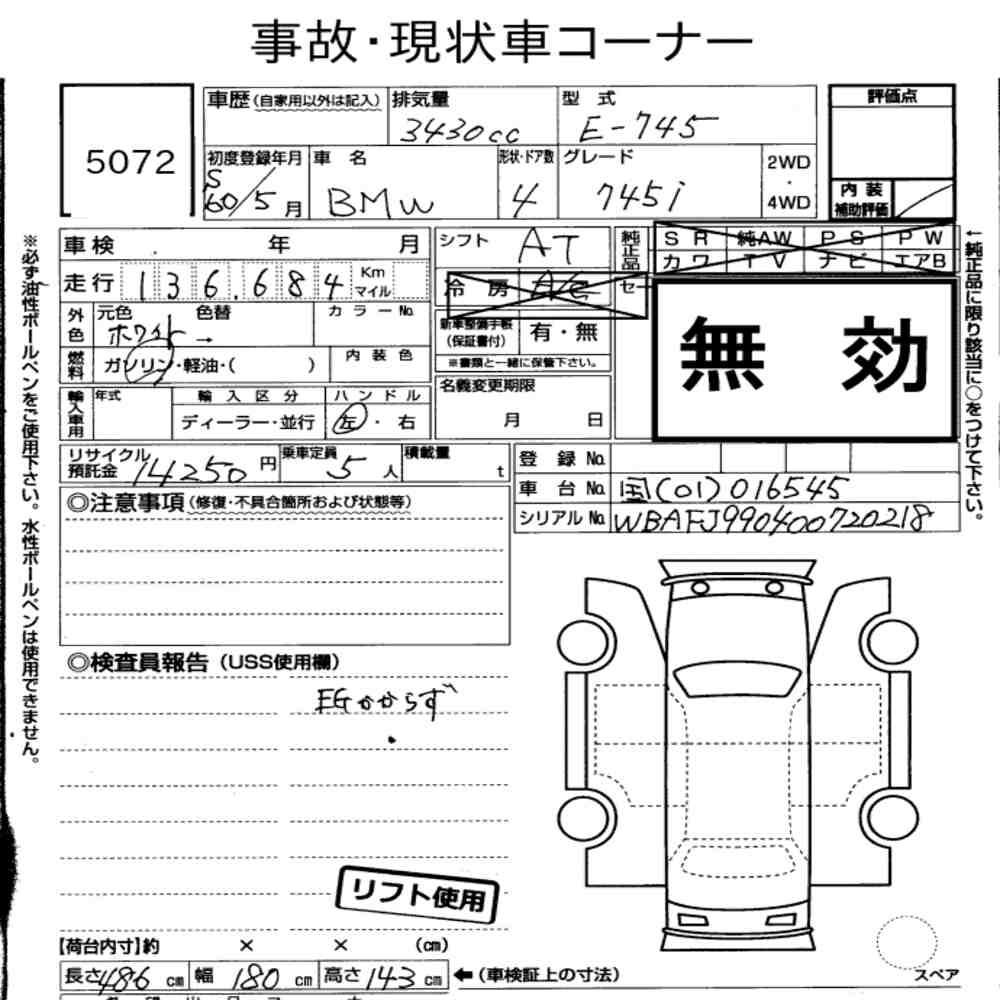 事故・現状車コーナー
5072
車歴（自家用以外は記入） 排気量 型 式 評価点
3430cc E-745
初度登録年月 車 名 形状・ドア数 グレード 2WD ・ 4WD
S 60/5 月 BMW 4 745i
内 装 補助評価
※必ず油性ボールペンをご使用下さい。水性ボールペンは使用できません。
車 検 年 月 シフト AT 純正品 S R 純AW P S P W
カワ T V ナビ エアB
走行 136.684 Km マイル 冷 房 A/C セ
←純正品に限り該当に○をつけて下さい。
外色 元色 色替 カラーNo.
ホワイト →
新車整備手帳（保証書付） 有・無
※書類と一緒に保管下さい。
無 効
燃料 ガソリン・軽油・( ) 内 装 色
名義変更期限
月 日
輸入車用 年式 輸 入 区 分 ハ ン ド ル
ディーラー・並行 左 ・ 右
リサイクル預託金 14250 円 乗車定員 5 人 積載量 t
登 録 No.
車 台 No. 国(01)016545
シリアル No. WBAFJ990400720218
◎注意事項（修復・不具合箇所および状態等）
◎検査員報告（USS使用欄）
EGかからず
リフト使用
【荷台内寸】約 × × （cm）
長さ 486 cm 幅 180 cm 高さ 143 cm ←（車検証上の寸法）
スペア